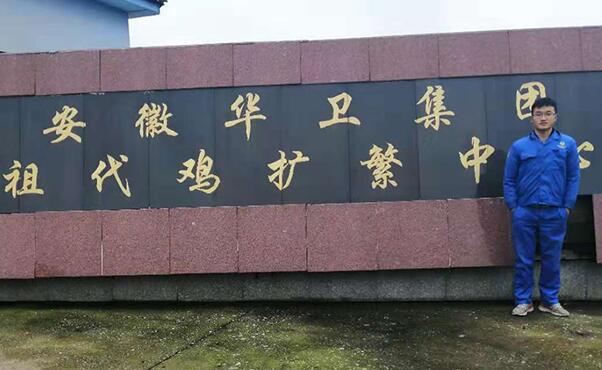 安徽华卫集团
祖代鸡扩繁中心